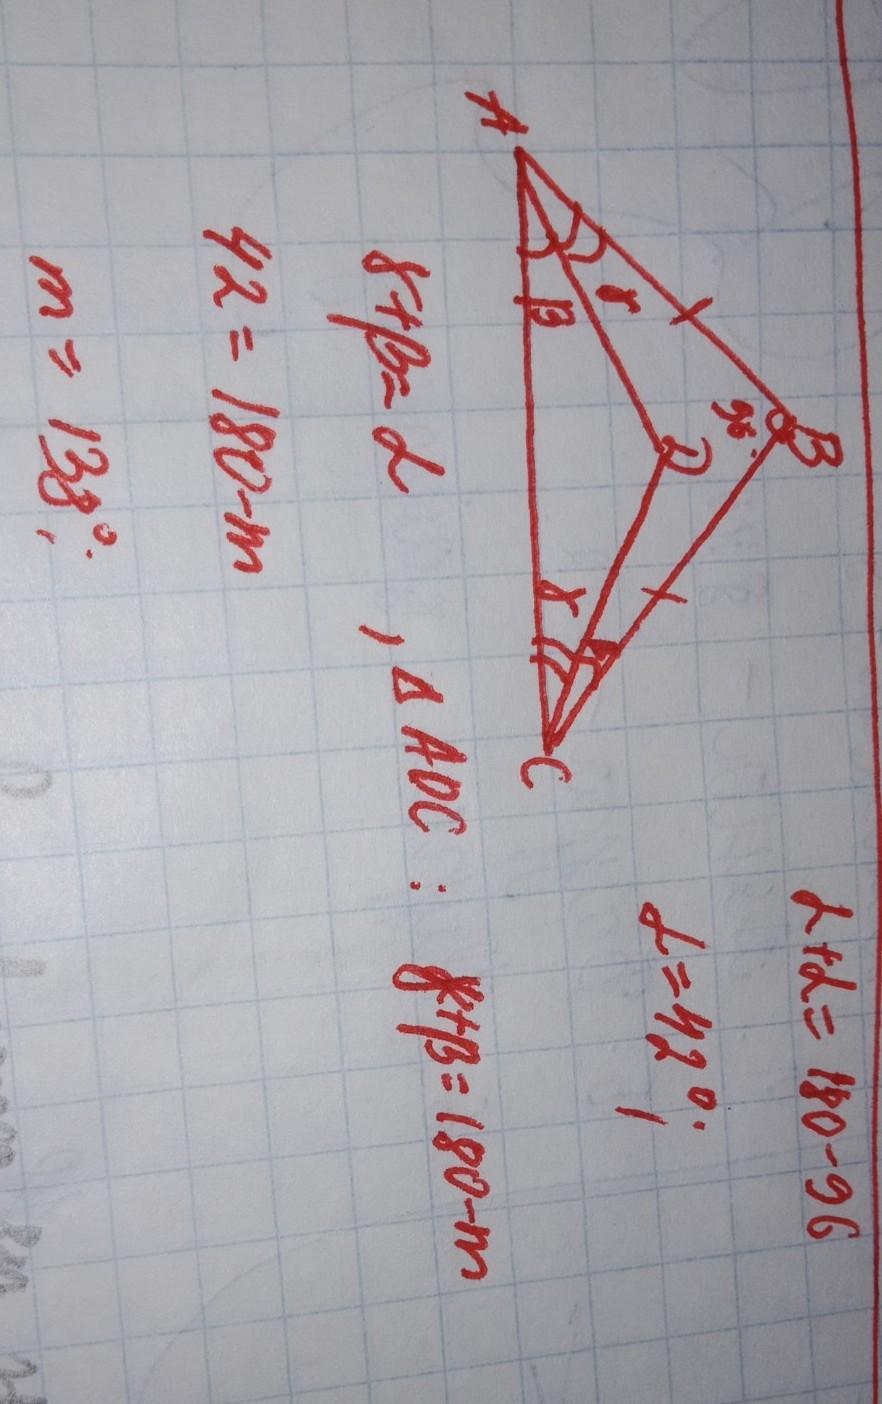 B
96°
A
D
C
γ
β
γ
β
α+α = 180-96
α = 42°;
γ+β=α, Δ ADC: γ+β = 180-m
42 = 180-m
m = 138°;